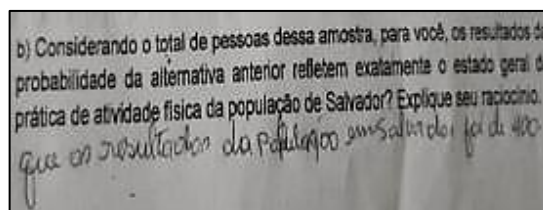 b) Considerando o total de pessoas dessa amostra, para você, os resultados da
probabilidade da alternativa anterior refletem exatamente o estado geral da
prática de atividade física da população de Salvador? Explique seu raciocínio.
que os resultados da população em salvador foi de 400